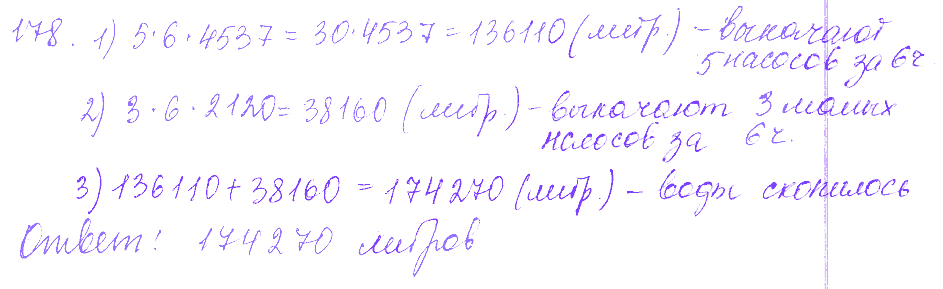 178. 1) 5·6·4537 = 30·4537 = 136110 (литр.) – выкачают
5 насосов за 6 ч.
2) 3·6·2120 = 38160 (литр.) – выкачают 3 малых
насосов за 6 ч.
3) 136110 + 38160 = 174270 (литр.) – воды скопилось
Ответ: 174270 литров